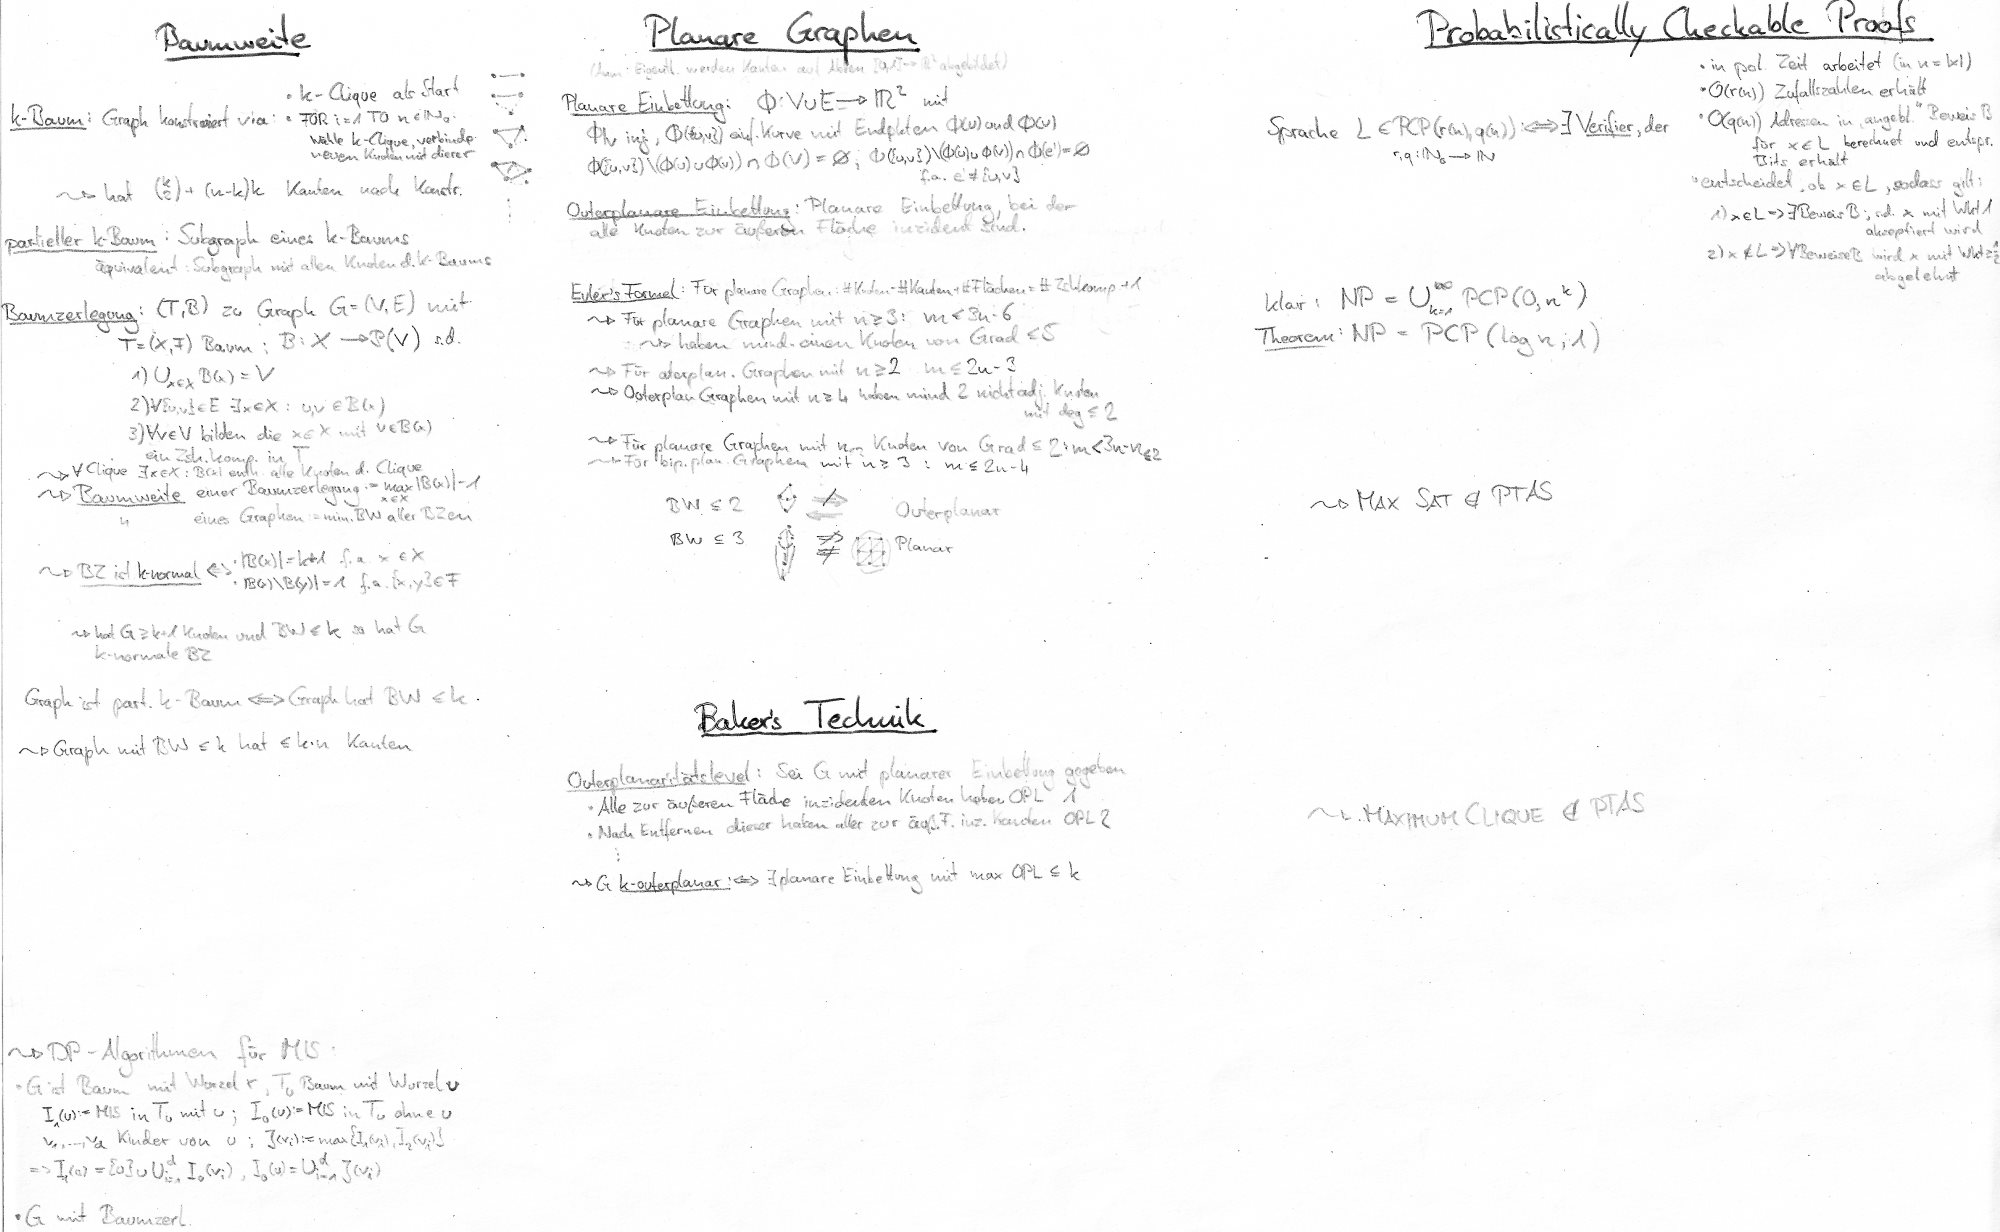 Baumweite
k-Baum: Graph konstruiert via:
• k-Clique als Start
• FOR i=1 TO n∈ℕ₀:
Wähle k-Clique, verbinde
neuen Knoten mit dieser
⇝ hat (k 2) + (n-k)k Kanten nach Konstr.
partieller k-Baum: Subgraph eines k-Baums
äquivalent: Subgraph mit allen Knoten d. k-Baums
Baumzerlegung: (T,B) zu Graph G=(V,E) mit
T=(X,F) Baum; B: X → P(V) s.d.
1) ∪x∈X B(x) = V
2) ∀{u,v}∈E ∃x∈X: u,v∈B(x)
3) ∀v∈V bilden die x∈X mit v∈B(x)
ein Zsh.komp. in T
⇝ ∀ Clique ∃x∈X: B(x) enth. alle Knoten d. Clique
⇝ Baumweite einer Baumzerlegung := max x∈X |B(x)|-1
" eines Graphen := min. BW aller BZen
⇝ BZ ist k-normal ⇔ • |B(x)|=k+1 f.a. x∈X
• |B(x)\B(y)|=1 f.a. {x,y}∈F
⇝ hat G ≥k+1 Knoten und BW≤k so hat G
k-normale BZ
Graph ist part. k-Baum ⇔ Graph hat BW ≤ k.
⇝ Graph mit BW ≤ k hat ≤ k·n Kanten
⇝ DP-Algorithmen für MIS:
• G ist Baum mit Wurzel r, Tᵤ Baum mit Wurzel u
I₁(u):= MIS in Tᵤ mit u; I₀(u):= MIS in Tᵤ ohne u
v₁,...,v_d Kinder von u; J(vᵢ):= max{I₁(vᵢ), I₂(vᵢ)}
=> I₁(u) = {u} ∪ ∪ᵢ₌₁ᵈ I₀(vᵢ), I₀(u) = ∪ᵢ₌₁ᵈ J(vᵢ)
• G mit Baumzerl.
Planare Graphen
(Anm.: Eigentl. werden Kanten auf Abben [0,1]→ℝ² abgebildet)
Planare Einbettung: Φ: V∪E → ℝ² mit
Φ|V inj, Φ({u,v}) auf Kurve mit Endpkten Φ(u) und Φ(v)
Φ({u,v})\(Φ(u)∪Φ(v)) ∩ Φ(V) = ∅; Φ({u,v})\(Φ(u)∪Φ(v)) ∩ Φ(e') = ∅
f.a. e'≠{u,v}
Outerplanare Einbettung: Planare Einbettung, bei der
alle Knoten zur äußeren Fläche inzident sind.
Euler's Formel: Für planare Graphen: #Knoten-#Kanten+#Flächen = #Zshkomp+1
⇝ Für planare Graphen mit n≥3: m≤3n-6
⇝ haben mind. einen Knoten von Grad ≤5
⇝ Für oterplan. Graphen mit n≥2 m≤2n-3
⇝ Outerplan Graphen mit n≥4 haben mind 2 nicht adj. Knoten
mit deg ≤ 2
⇝ Für planare Graphen mit n≤2 Knoten von Grad ≤ 2: m<3n-n≤2
⇝ Für bip. plan. Graphen mit n≥3: m≤2n-4
BW ≤ 2 ⇏ ⇐ Outerplanar
BW ≤ 3 ⇏ ⇍ Planar
Baker's Technik
Outerplanaritätslevel: Sei G mit planarer Einbettung gegeben
• Alle zur äußeren Fläche inzidenten Knoten haben OPL 1
• Nach Entfernen dieser haben aller zur äuß. F. inz. Knoten OPL 2
⋮
⇝ G k-outerplanar :⇔ ∃ planare Einbettung mit max OPL ≤ k
Probabilistically Checkable Proofs
Sprache L ∈ PCP(r(n), q(n)) :⇔ ∃ Verifier, der
r,q: ℕ₀ → ℕ
• in pol. Zeit arbeitet (in n=|x|)
• O(r(n)) Zufallszahlen erhält
• O(q(n)) Adressen in „angebl." Beweis B
für x∈L berechnet und entspr.
Bits erhält
• entscheidet, ob x∈L, sodass gilt:
1) x∈L => ∃ Beweis B, s.d. x mit Wkt 1
akzeptiert wird
2) x∉L => ∀ Beweise B wird x mit Wkt ≥ ½
abgelehnt
klar: NP = ∪ₖ₌₁^∞ PCP(0, nᵏ)
Theorem: NP = PCP(log n, 1)
⇝ MAX SAT ∉ PTAS
⇝ MAXIMUM CLIQUE ∉ PTAS